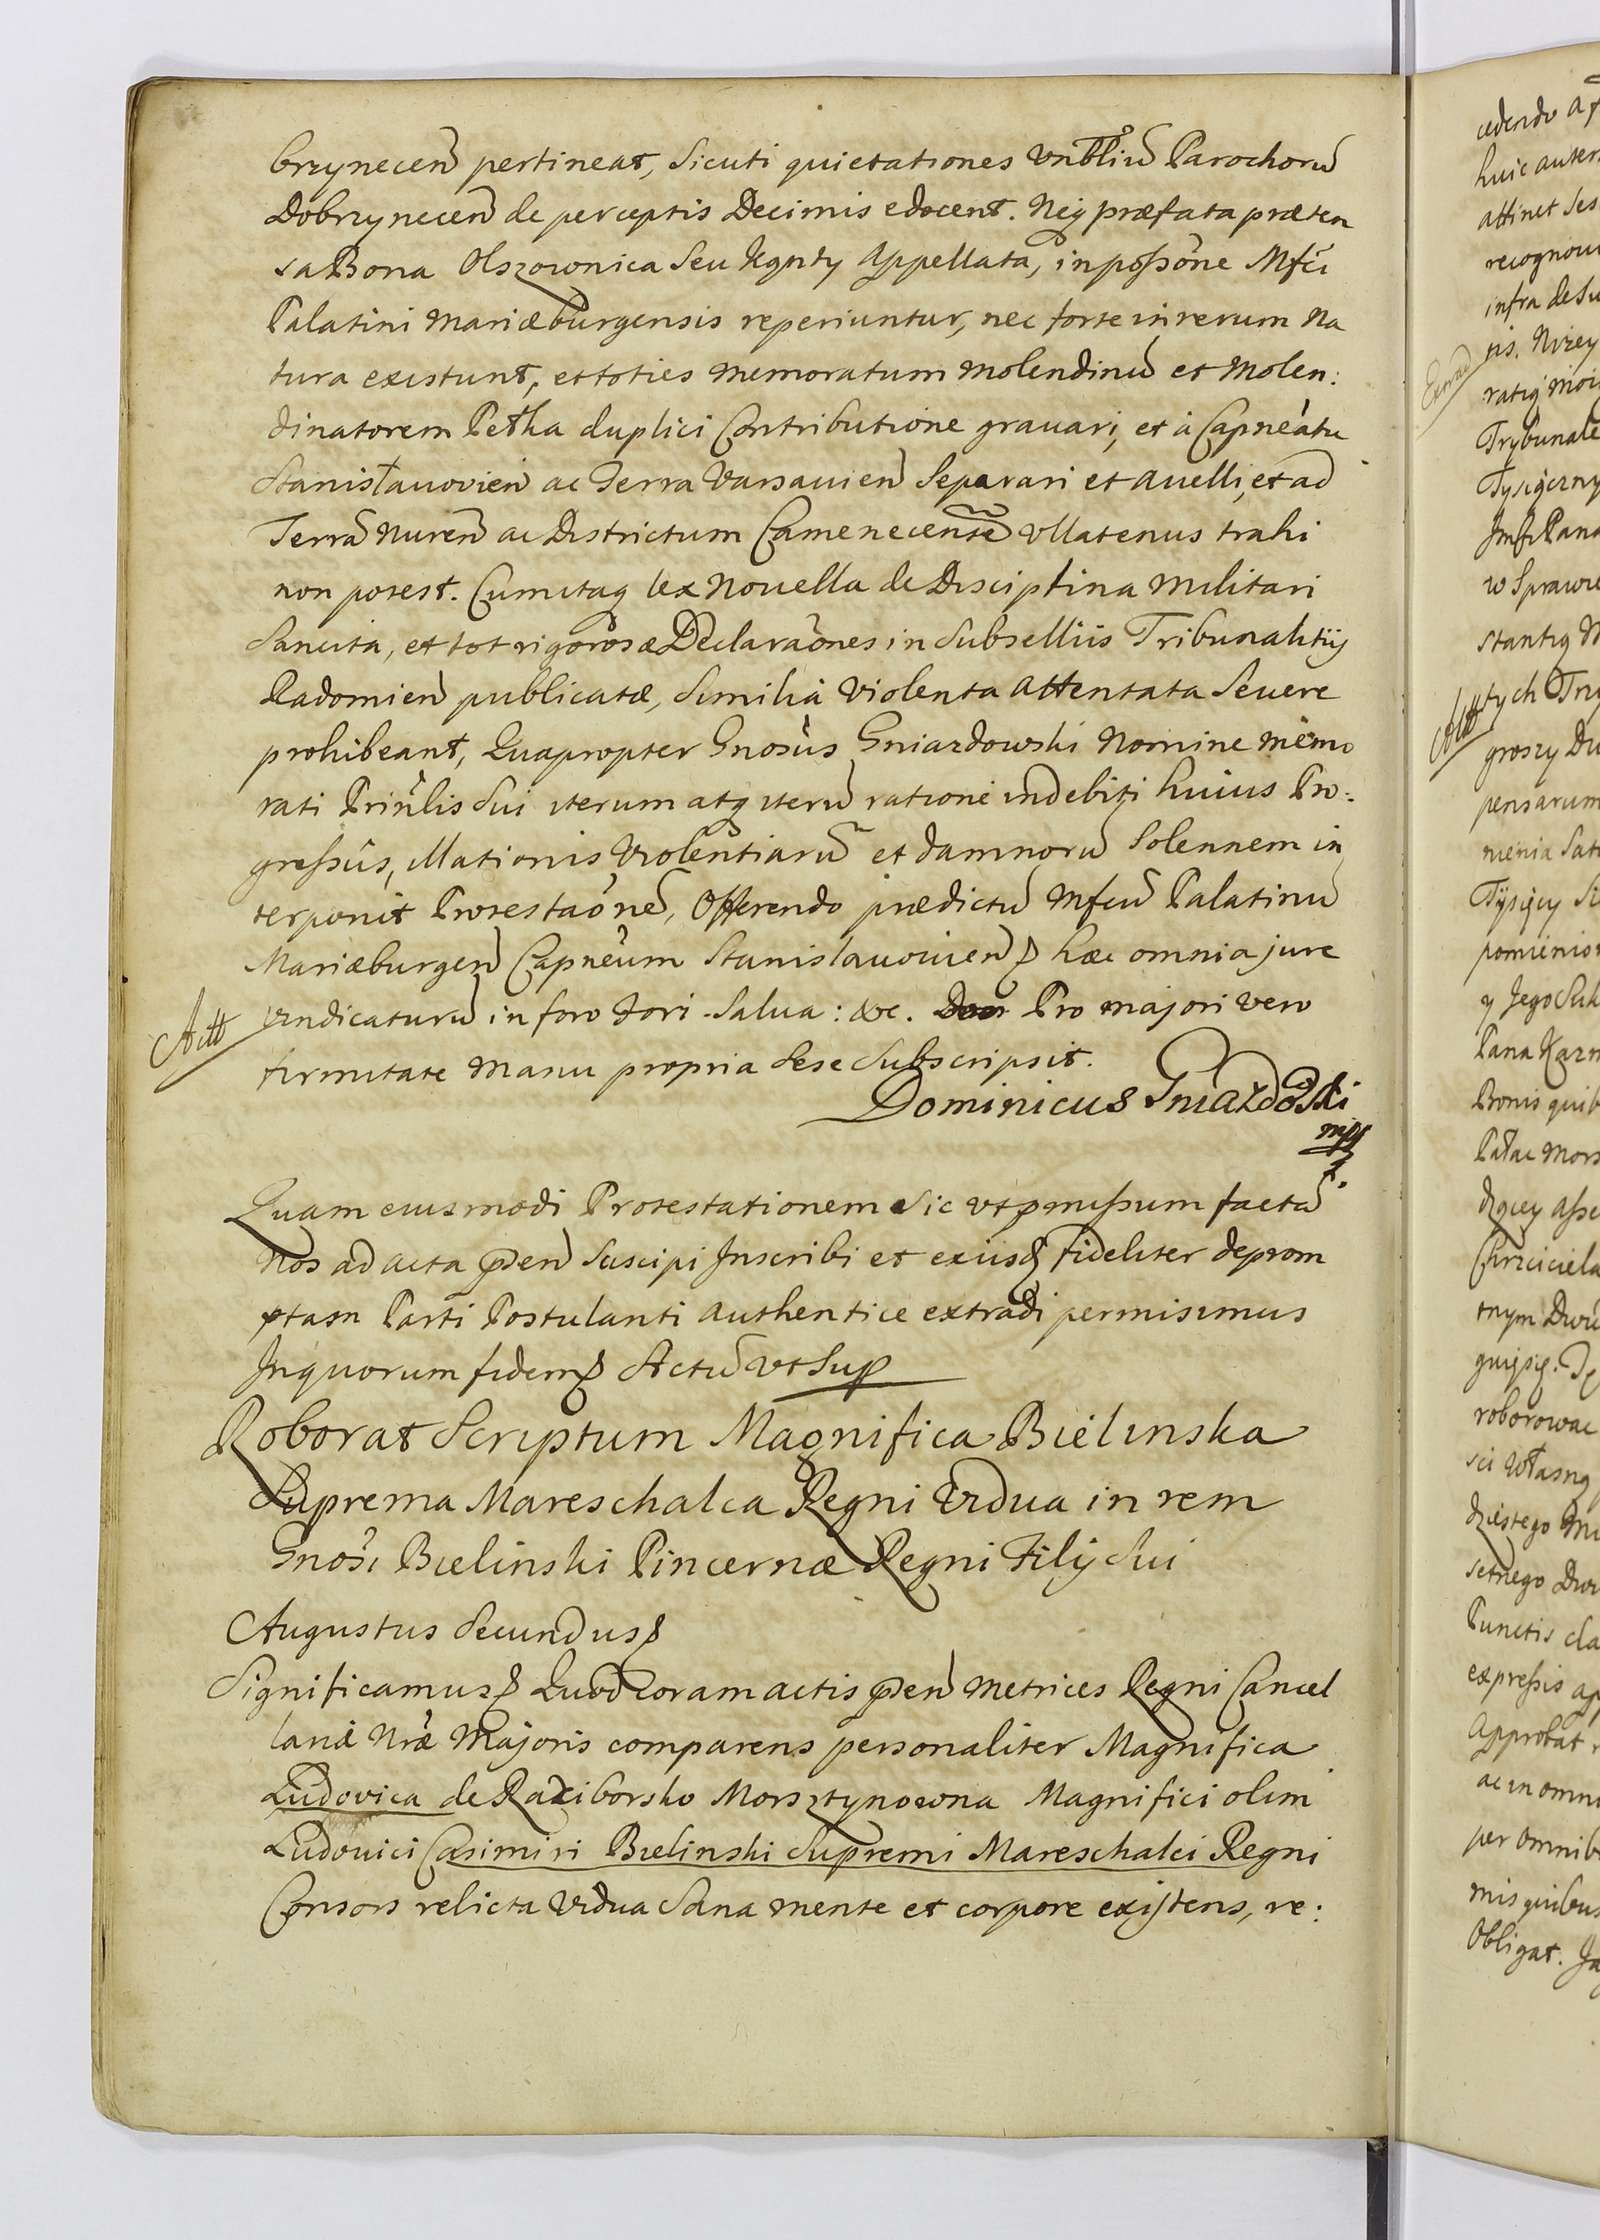 brzynecen pertineat, sicuti quietationes vnbliu Parochoru
Dobrzynecen de perceptis Decimis edocent. Neq præfata præten
sa Bona Olszownica seu Kąnty appellata, in poßone Mfci
Palatini Mariæburgensis reperiuntur, nec forte in rerum Na
tura existunt, et toties memoratum molendinu et Molen:
dinatorem Petha duplici Contributione grauari, et à Capneatu
Stanisławovien ac Terra Varsauien separari et auelli, et ad
Terra Nuren ac Districtum Camenecense vllatenus trahi
non potest. Cum itaq lex Nouella de Disciplina militari
sancita, et tot rigorosæ Declaraones in subselliis Tribunalitijs
Radomien publicatæ, similia violenta attentata seuere
prohibeant, Quapropter Gnosus Gniazdowski Nomine memo
rati Prinlis sui iterum atq iteru ratione indebiti huius Pro:
greßus, illationis violentiaru et damnoru solennem in
terponit Protestaone, Offerendo prædictu Mfcu Palatinu
Mariæburgen Capneum Stanislauouien hæc omnia jure
vindicaturu in foro fori. Salua: &c. Pro majori vero
firmitate manu propria sese subscripsit.
Actt
Dominicus Gniazdoski
mpp
Quam eiusmodi Protestationem sic vt pmißum facta
Nos ad acta psen suscipi Inscribi et exiisd fideliter deprom
ptam Parti Postulanti authentice extradi permisimus
In quorum fidem Actu vt sup
Roborat Scriptum Magnifica Bielinska
Suprema Mareschalca Regni Vidua in rem
Gnosi Bielinski Pincernæ Regni Filij sui
Augustus Secundus
Significamus Quod coram actis psen Metrices Regni Cancel
lariæ Nræ Majoris comparens personaliter Magnifica
Ludovica de Raciborsko Morsztynowna Magnifici olim
Ludouici Casimiri Bielinski Supremi Mareschalci Regni
Consors relicta vidua sana mente et corpore existens, re:
cedendo a
huic autem
attinet ses
recognou
infra de su
tis. Nizey
ratię moię
Trybunale
Tysięczny
Jmsc Pana
w Sprawie
stantię
tych Trz
Actt
groszy Du
pensarum
nienia sat
Tysięcy
pomienion
y Jego Suk
Pana Kazm
Bonis quib
Patac Mors
dzącey asse
Chrzciciela
tnym Dwu
roborowac
sci własną
dziestego
setnego Dwu
Punctis cla
expreßis ap
Approbat
ac in omni
per omnib
mis quibus
Obligat. Ja